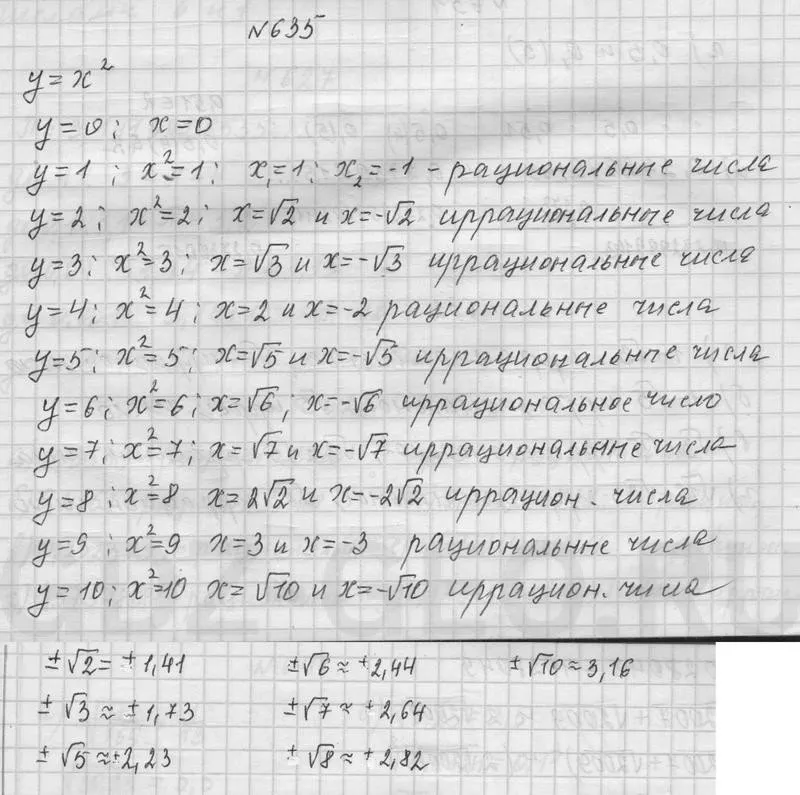 №635
y = x²
y = 0; x = 0
y = 1; x² = 1; x₁ = 1; x₂ = -1 - рациональные числа
y = 2; x² = 2; x = √2 и x = -√2 иррациональные числа
y = 3; x² = 3; x = √3 и x = -√3 иррациональные числа
y = 4; x² = 4; x = 2 и x = -2 рациональные числа
y = 5; x² = 5; x = √5 и x = -√5 иррациональные числа
y = 6; x² = 6; x = √6; x = -√6 иррациональное число
y = 7; x² = 7; x = √7 и x = -√7 иррациональные числа
y = 8; x² = 8 x = 2√2 и x = -2√2 иррацион. числа
y = 9; x² = 9 x = 3 и x = -3 рациональные числа
y = 10; x² = 10 x = √10 и x = -√10 иррацион. числа
±√2 = ±1,41 ±√6 ≈ ±2,44 ±√10 ≈ 3,16
±√3 ≈ ±1,73 ±√7 ≈ ±2,64
±√5 ≈ ±2,23 ±√8 ≈ ±2,82